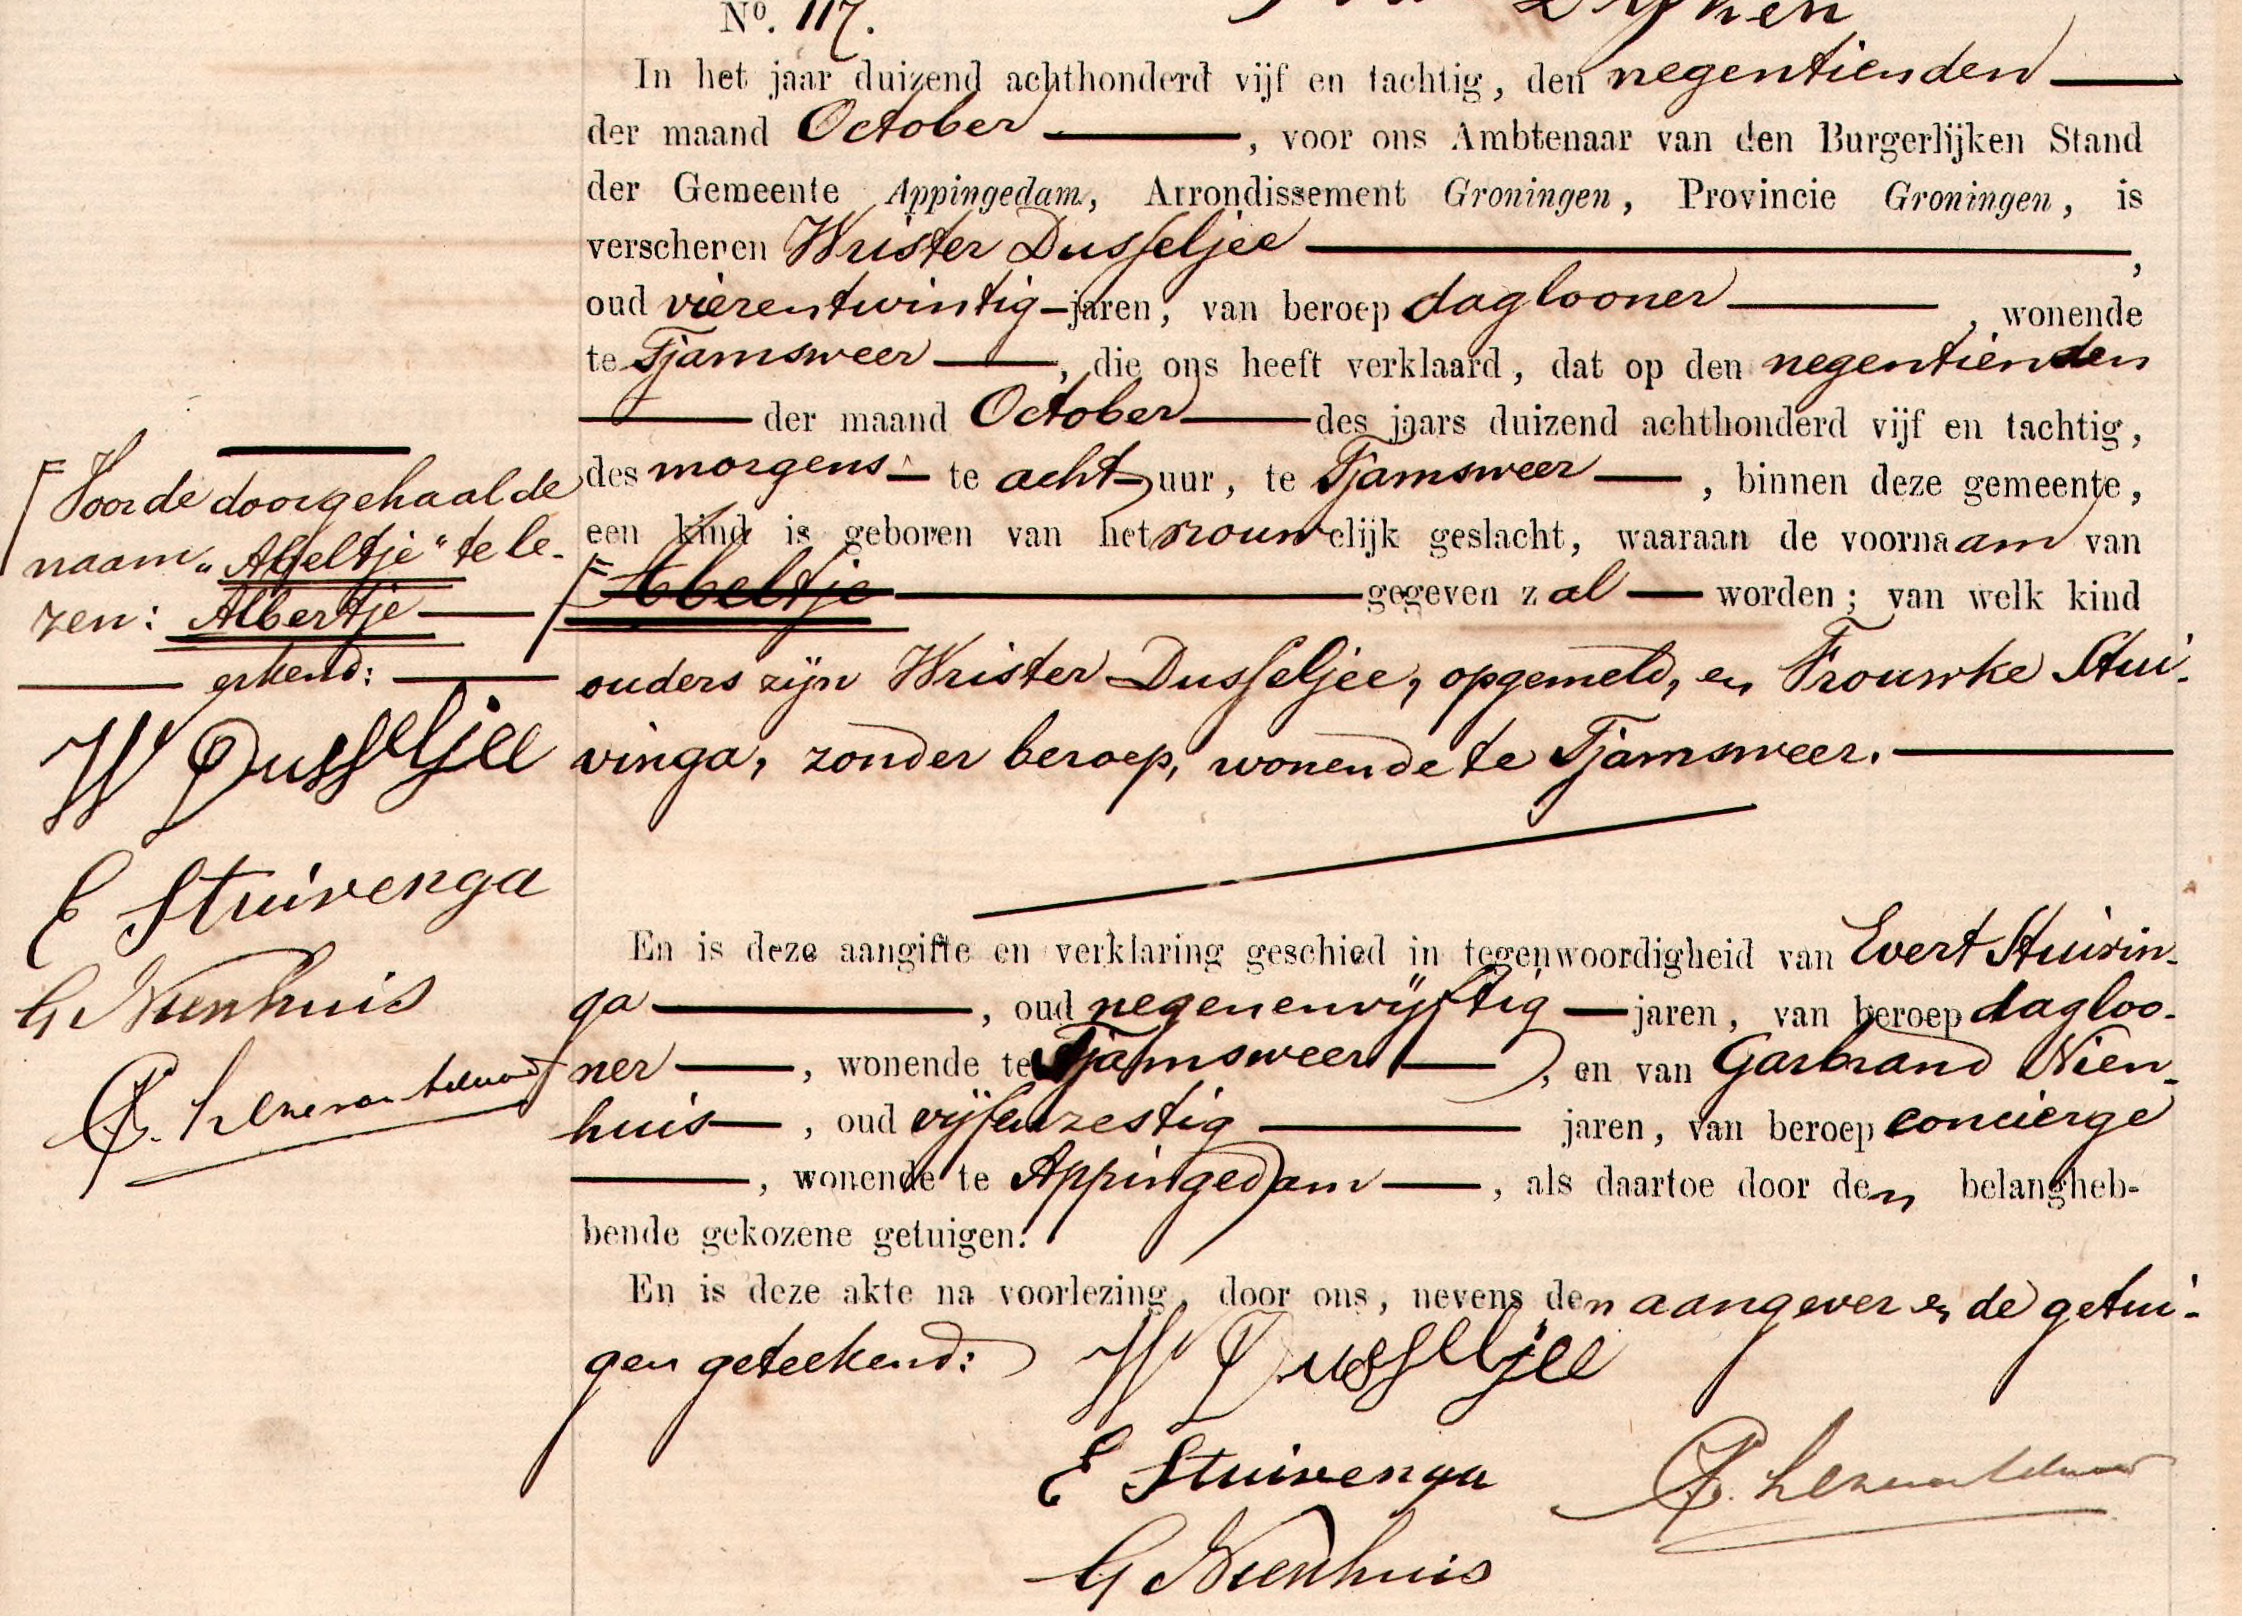 N⁰. 117.
In het jaar duizend achthonderd vijf en tachtig, den negentienden
der maand October, voor ons Ambtenaar van den Burgerlijken Stand
der Gemeente Appingedam, Arrondissement Groningen, Provincie Groningen, is
verschenen Wrister Dusseljee,
oud vierentwintig jaren, van beroep daglooner, wonende
te Tjamsweer, die ons heeft verklaard, dat op den negentienden
der maand October des jaars duizend achthonderd vijf en tachtig,
des morgens te acht uur, te Tjamsweer, binnen deze gemeente,
een kind is geboren van het vrouwelijk geslacht, waaraan de voornaam van
Abeltje gegeven zal worden; van welk kind
ouders zijn Wrister Dusseljee, opgemeld, en Frouwke Stui-
vinga, zonder beroep, wonende te Tjamsweer.
En is deze aangifte en verklaring geschied in tegenwoordigheid van Evert Stuivin-
ga, oud negenenvijftig jaren, van beroep dagloo-
ner, wonende te Tjamsweer, en van Garbrand Nien-
huis, oud vijfenzestig jaren, van beroep concierge
, wonende te Appingedam, als daartoe door den belangheb-
bende gekozene getuigen.
En is deze akte na voorlezing, door ons, nevens den aangever en de getui-
gen geteekend:
W Dusseljee
E Stuivenga
G Nienhuis
Voor de doorgehaalde
naam „Abeltje" te le-
zen: Albertje
erkend:
W Dusseljee
E Stuivenga
G Nienhuis